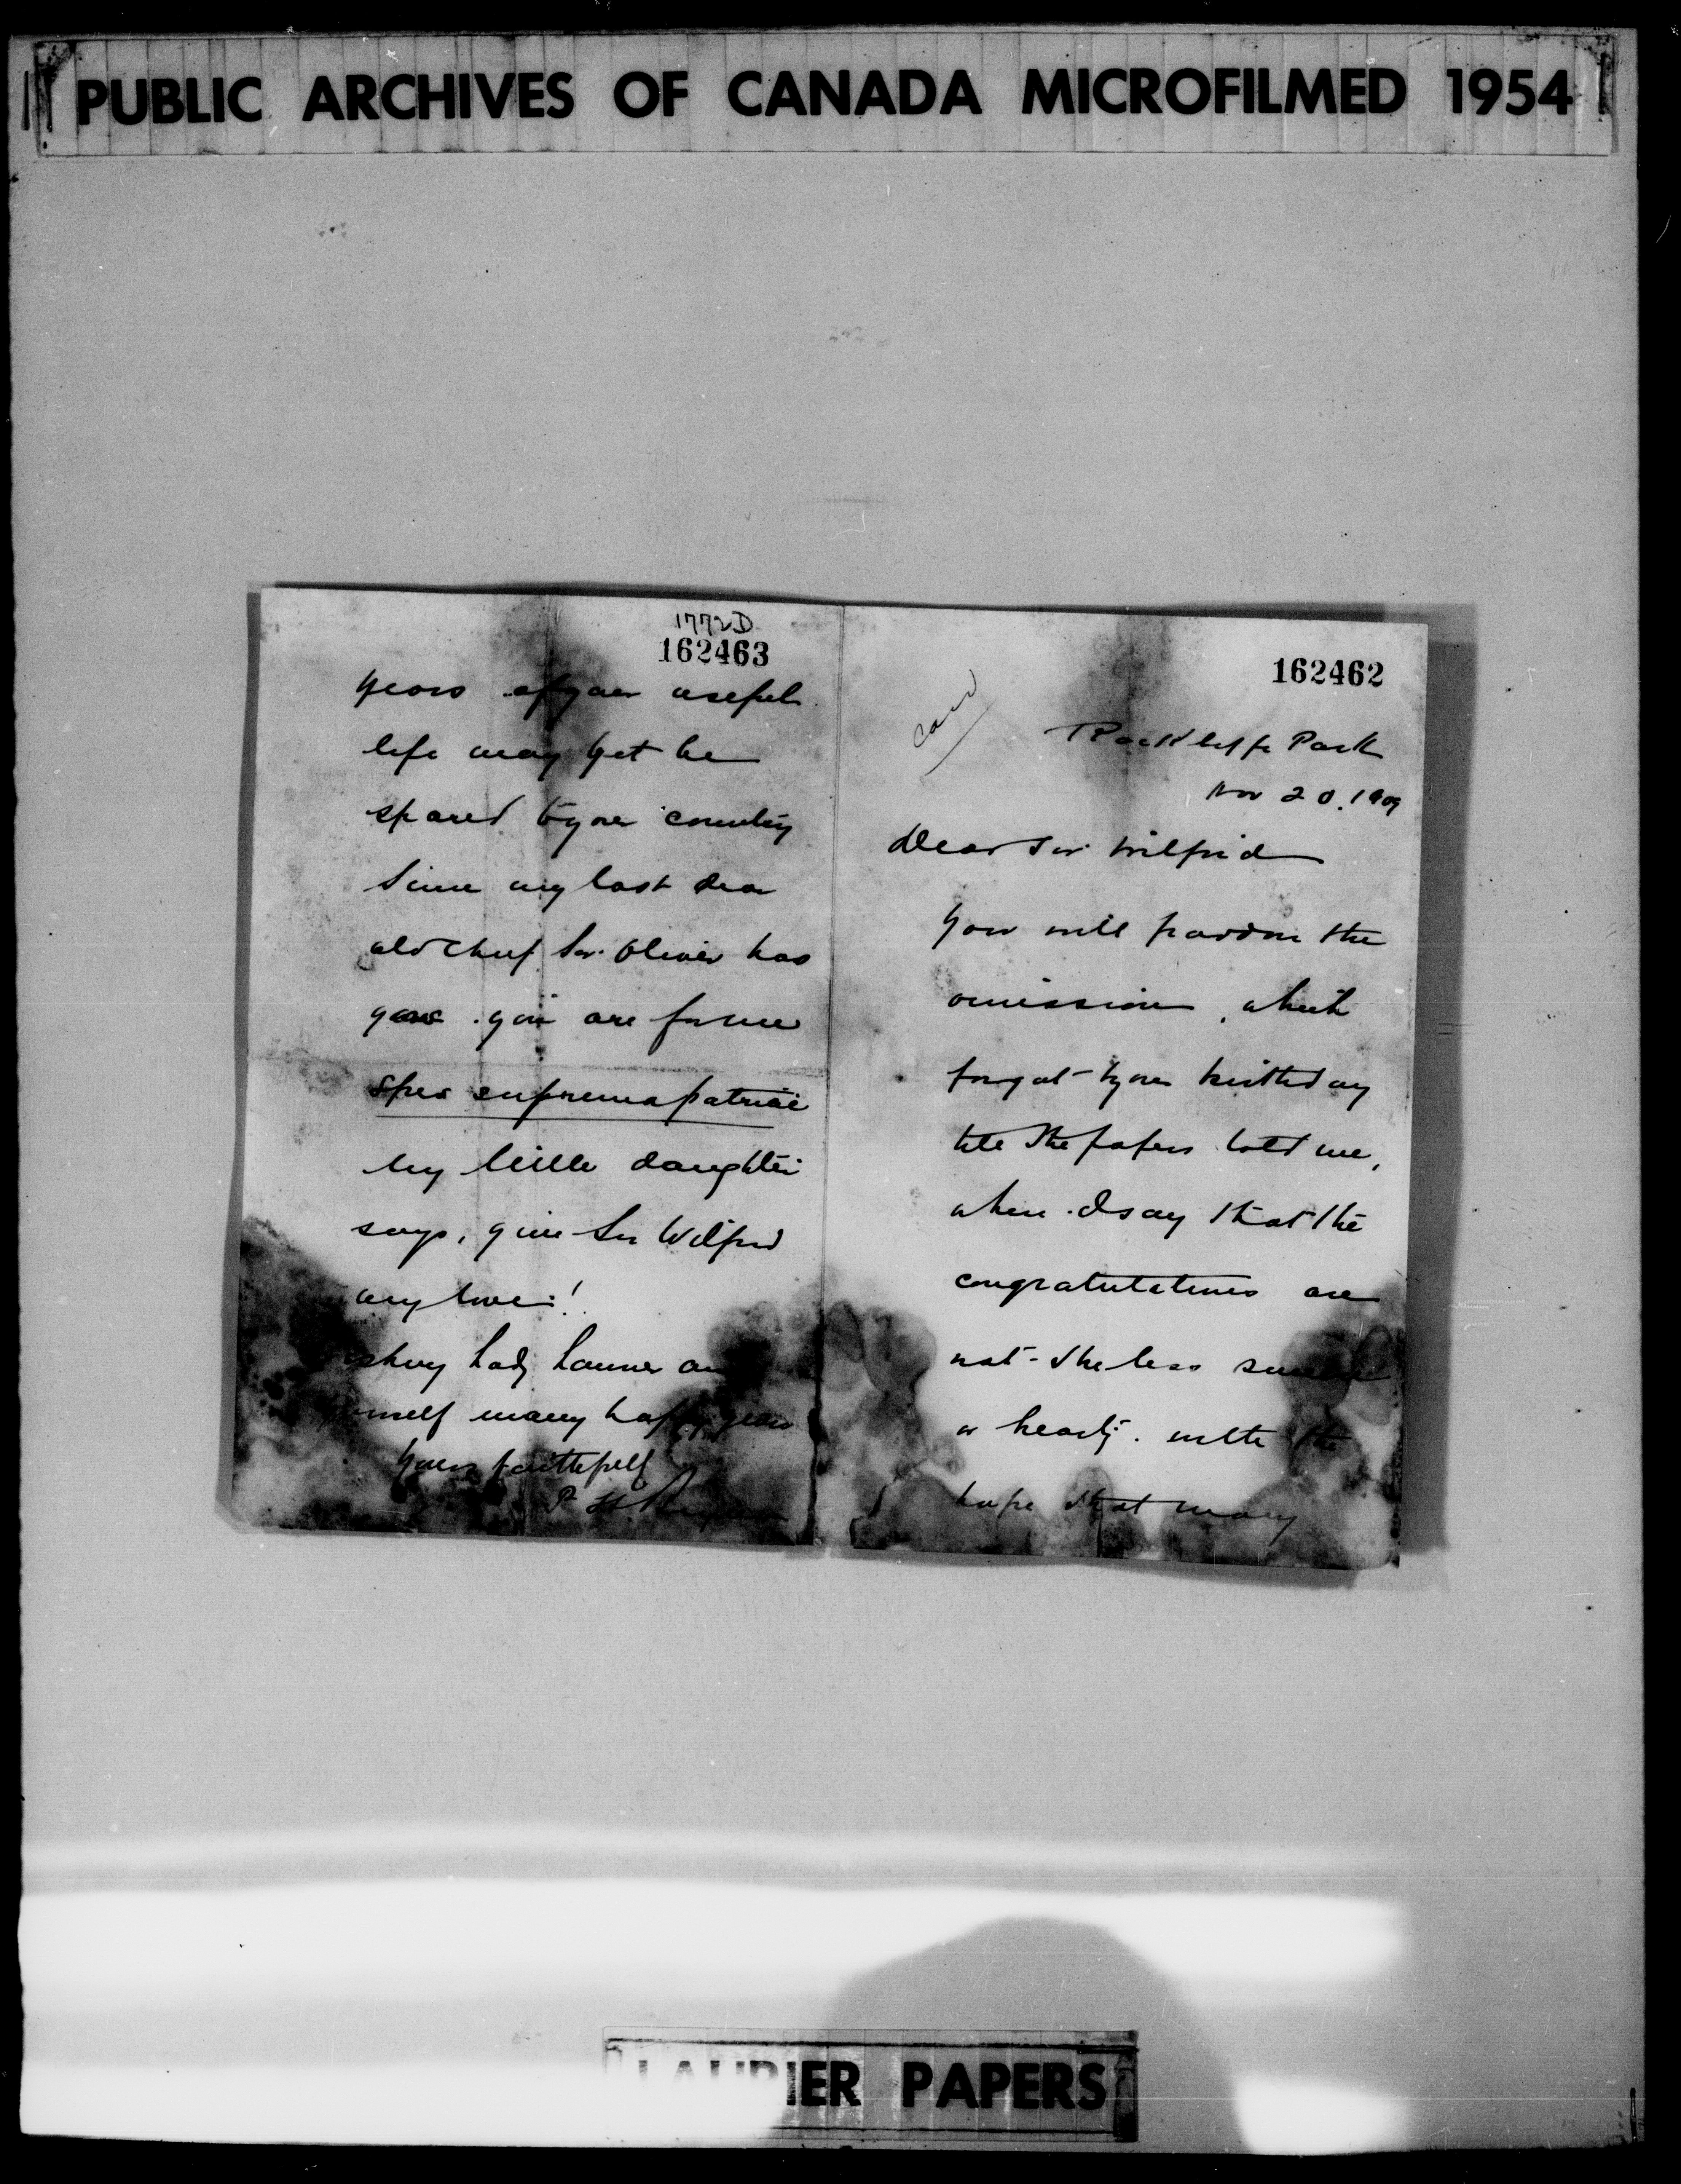 PUBLIC ARCHIVES OF CANADA MICROFILMED 1954
162462
Rockliffe Park
Nov 20. 1909
Dear Sir Wilfrid
You will pardon the
omission, which
forgot your birthday
till the papers told me,
when I say that the
congratulations are
not the less sincere
or hearty. with the
hope that many
1772D
162463
years of your useful
life may yet be
spared to your country
Since my last dear
old chief Sir Oliver has
gone. you are for me
spes suprema patriae
My little daughter
says, give Sir Wilfrid
my love!
Lady Laurier and
many happy years
Yours faithfully
P. H.
LAURIER PAPERS